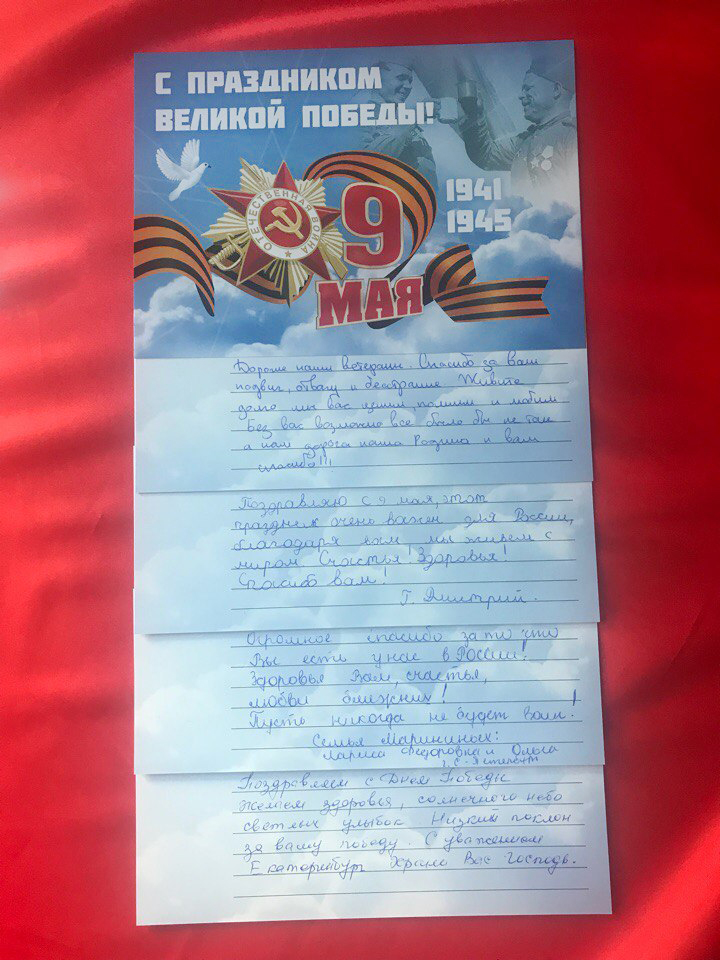 С ПРАЗДНИКОМ
ВЕЛИКОЙ ПОБЕДЫ!
1941
1945
ОТЕЧЕСТВЕННАЯ ВОЙНА
9
МАЯ
Дорогие наши Ветераны. Спасибо за ваш
подвиг, отвагу и бесстрашие Живите
долго мы вас ценим помним и любим
Без вас возможно все было бы не так
а нам дорога наша Родина и вам
спасибо!!!
Поздравляю с 9 мая, этот
праздник очень важен для России,
благодаря вам мы живем с
миром Счастья! Здоровья!
Спасибо вам!
Г. Дмитрий.
Огромное спасибо за то что
Вы есть у нас в России!
Здоровья Вам, счастья,
любви ближних!
Пусть никогда не будет войн!
Семья Марининых:
Лариса Федоровна и Ольга
Поздравляем с Днем Победы
Желаем здоровья, солнечного неба
светлых улыбок Низкий поклон
за вашу победу. С уважением
Екатеринбург Храни Вас Господь.